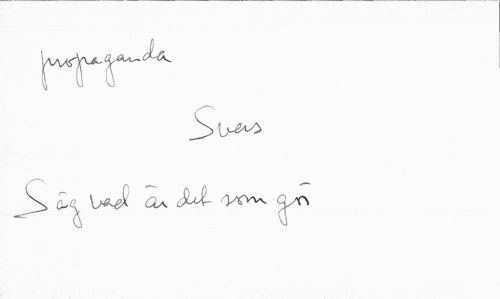 propaganda
Svens
Säg vad är det som gör